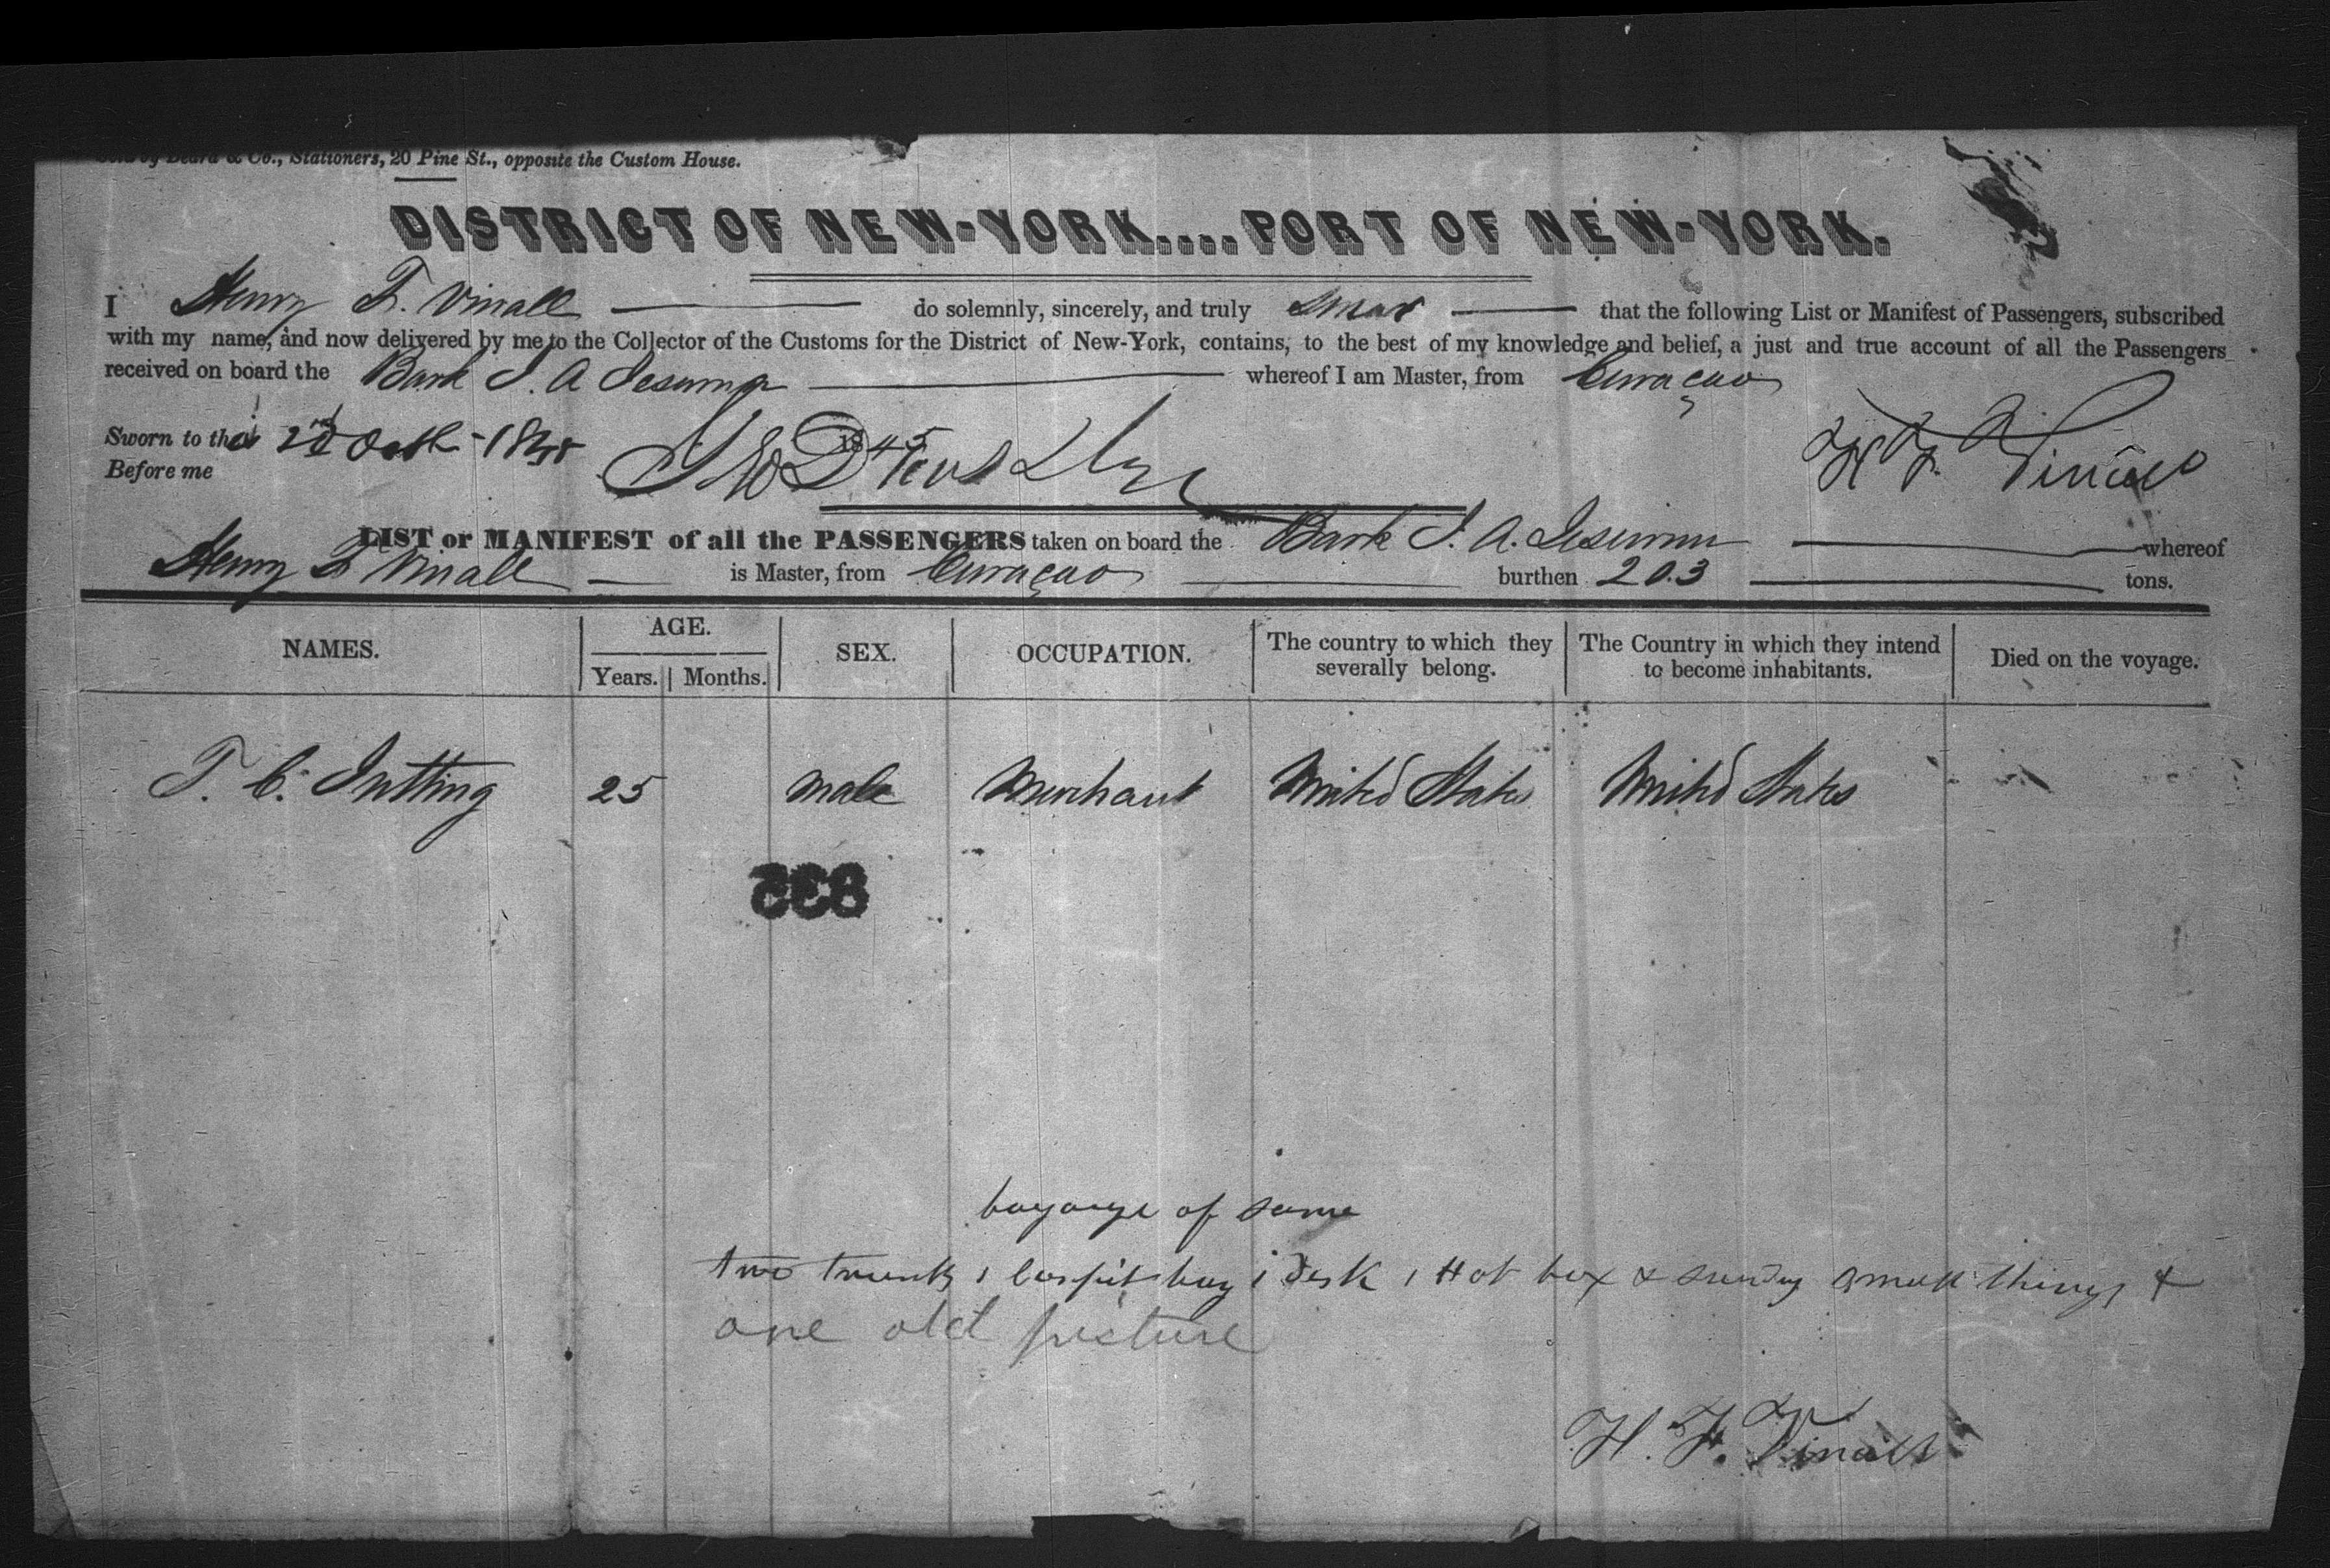 Sold by Beard & Co., Stationers, 20 Pine St., opposite the Custom House.
DISTRICT OF NEW-YORK....PORT OF NEW-YORK.
I Henry F. Vinall do solemnly, sincerely, and truly swear that the following List or Manifest of Passengers, subscribed
with my name, and now delivered by me to the Collector of the Customs for the District of New-York, contains, to the best of my knowledge and belief, a just and true account of all the Passengers
received on board the Bark J. A. Jesurun whereof I am Master, from Curaçao
Sworn to this 22d Octr 1845
Before me
H F Vinall
LIST or MANIFEST of all the PASSENGERS taken on board the Bark J. A. Jesurun whereof
Henry F Vinall is Master, from Curaçao burthen 203 tons.
NAMES. AGE. SEX. OCCUPATION. The country to which they severally belong. The Country in which they intend to become inhabitants. Died on the voyage.
Years. Months.
T. C. 25 male Merchant United States United States
835
bagage of same
two trunks 1 carpit bag 1 desk 1 Hat box & sundry small things &
one old picture
H. F. Vinall